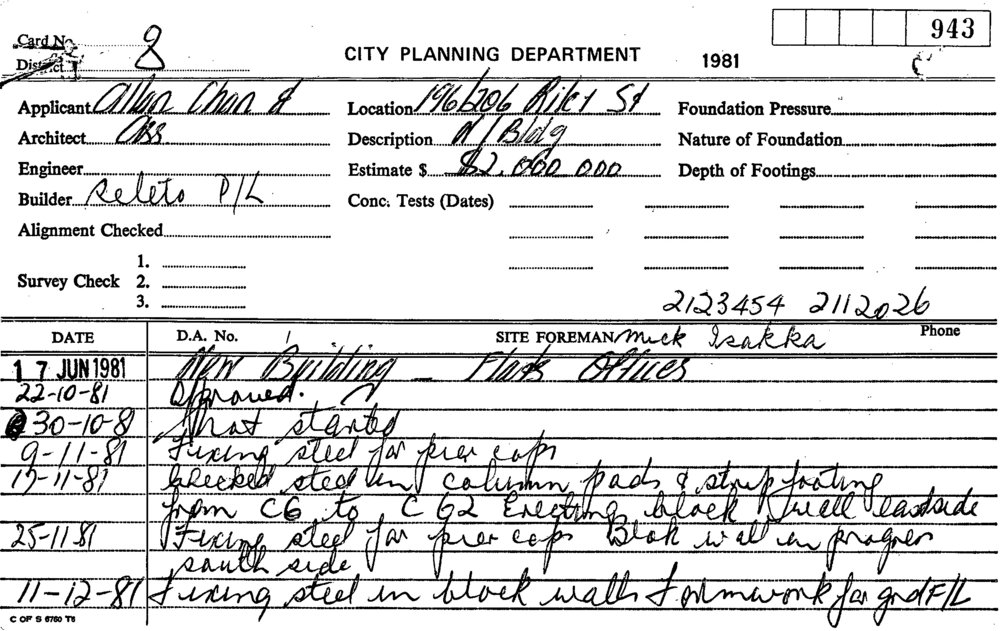 943
Card No. 8
District
CITY PLANNING DEPARTMENT 1981
Applicant Allan Chan &
Location 196/206 Riley St
Foundation Pressure
Architect Ass.
Description N/Bldg
Nature of Foundation
Engineer
Estimate $ $2,000 000
Depth of Footings
Builder Seleto P/L
Conc. Tests (Dates)
Alignment Checked
Survey Check 1.
2.
3.
2123454 2112026
DATE D.A. No. SITE FOREMAN Mick Isakka Phone
17 JUN 1981 New Building - Flats Offices
22-10-81 Approved.
30-10-81 Not started
9-11-81 Fixing steel for pier caps
17-11-81 Checked steel in column pads & strip footing
from C6 to C62 Erecting block wall eastside
25-11-81 Fixing steel for pier caps Blok wall in progress
south side
11-12-81 Fixing steel in block walls Formwork for gnd F/L
C OF S 6760 T6